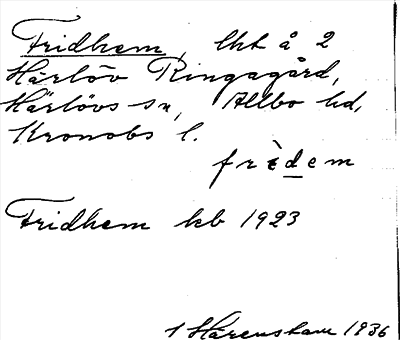 Fridhem, lht å 2
Härlöv Ringagård,
Härlövs sn, Allbo hd,
Kronobs l.
frìdem
Fridhem kb 1923
1 Härenstam 1936